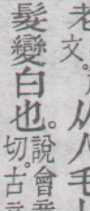 老文。从人毛
髮變白也。說會
切。古